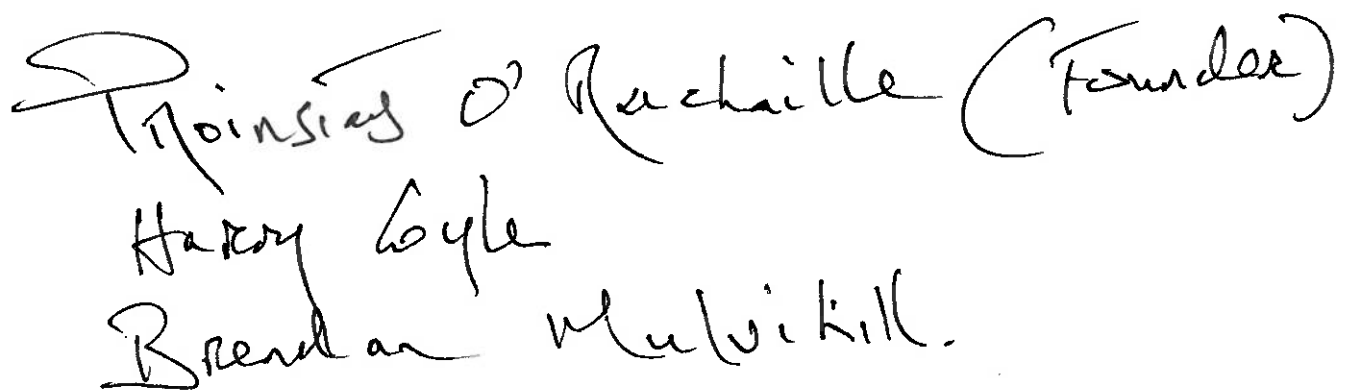 Proinsias O' Rachaille (Founder)
Harry Coyle
Brendan Mulvihill.